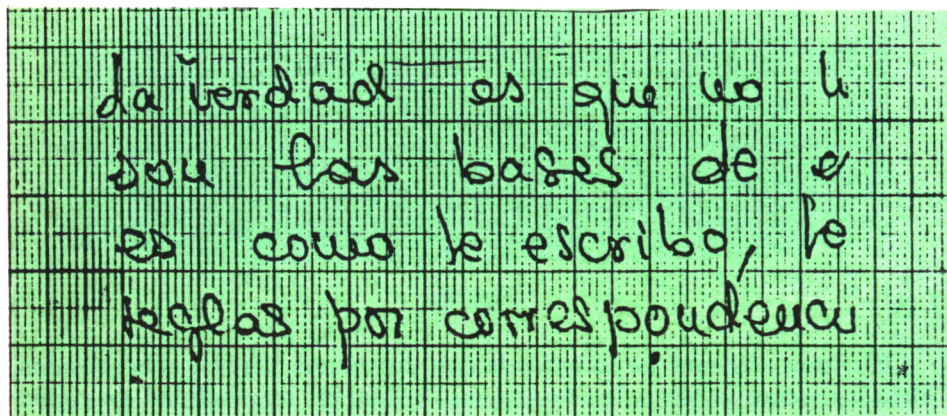 La verdad es que no
son las bases de
es como te escribo, te
reglas por correspondenci